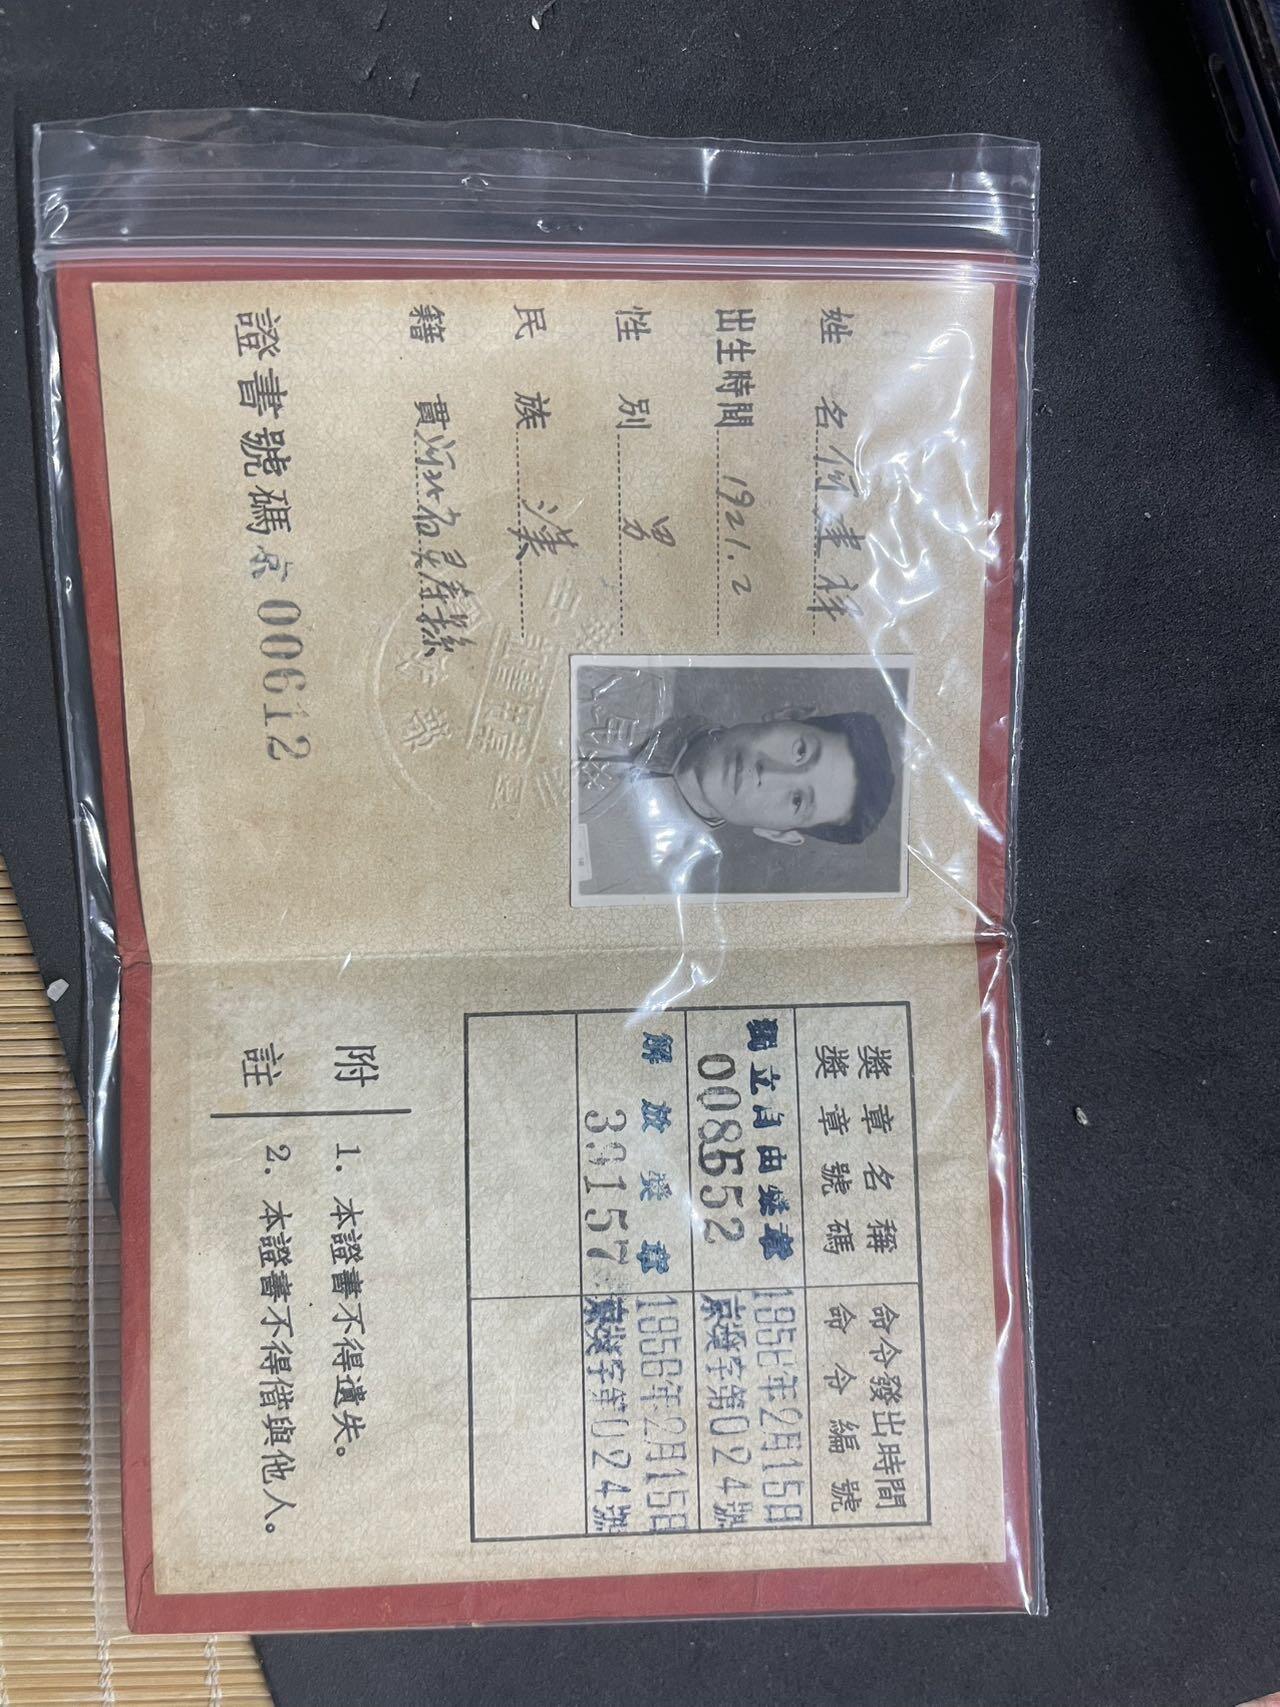 姓名 何建祥
出生時間 1921.2
性別 男
民族 漢
籍貫 河北省灵壽縣
證書號碼 京 00612
獎章名稱
獎章號碼
命令發出時間
命令編號
獨立自由獎章
008552
1956年2月15日
京獎字第024號
解放獎章
39157
1956年2月15日
京獎字第024號
附註
1. 本證書不得遺失。
2. 本證書不得借與他人。